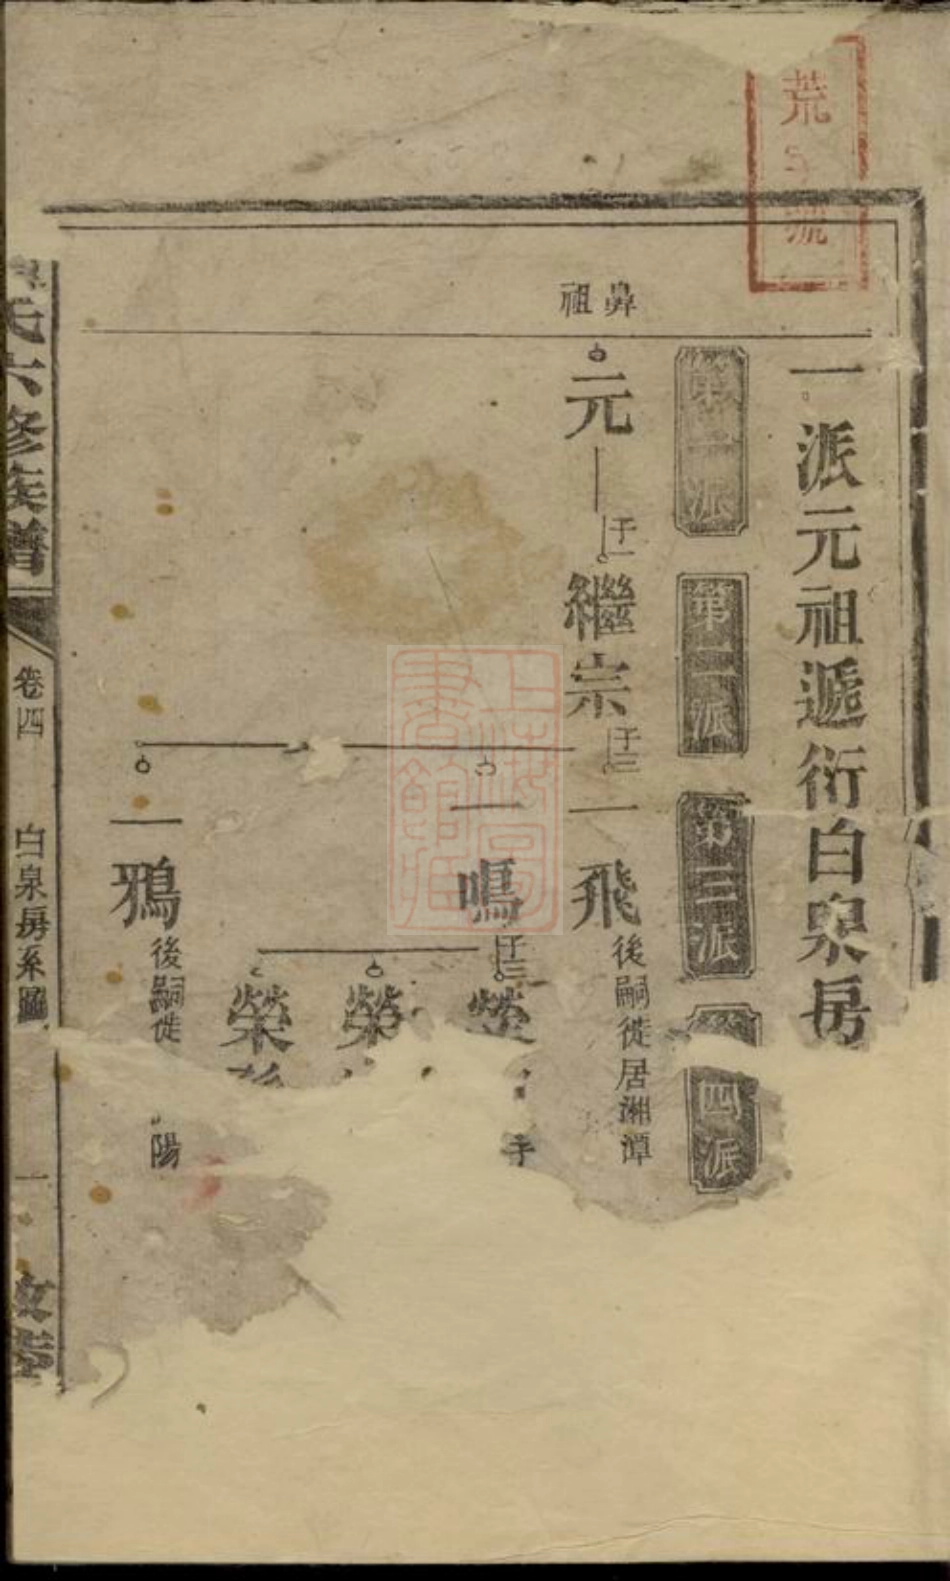 荒字號
鼻祖
一派元祖遞衍白泉房
第一派
第二派
第三派
第四派
元
子一
繼宗
子三
一飛
後嗣徙居湘潭
一鳴
子三
榮
子
榮
榮
一鴉
後嗣徙
陽
氏六修族譜
卷四
白泉房系圖
一
上海圖書館藏